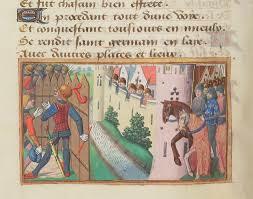 Et fut chascun bien effree.
En procedant tout dune voye.
Et conquestant tousiours en meulx.
Se rendit saint germain en laye.
Avec dautres places et lieux.